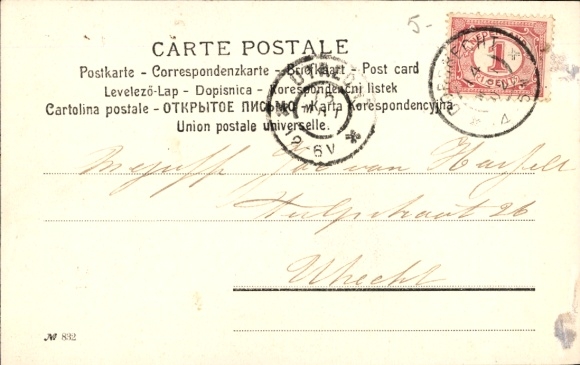 5-
CARTE POSTALE
Postkarte - Correspondenzkarte - Briefkaart - Post card
Levelező-Lap - Dopisnica - Korespondenčni listek
Cartolina postale - ОТКРЫТОЕ ПИСЬМО - Karta Korespondencyjna
Union postale universelle.
1
UTRECHT
12 6V
Mejuff van
Tulpstraat 26
Utrecht
№ 832